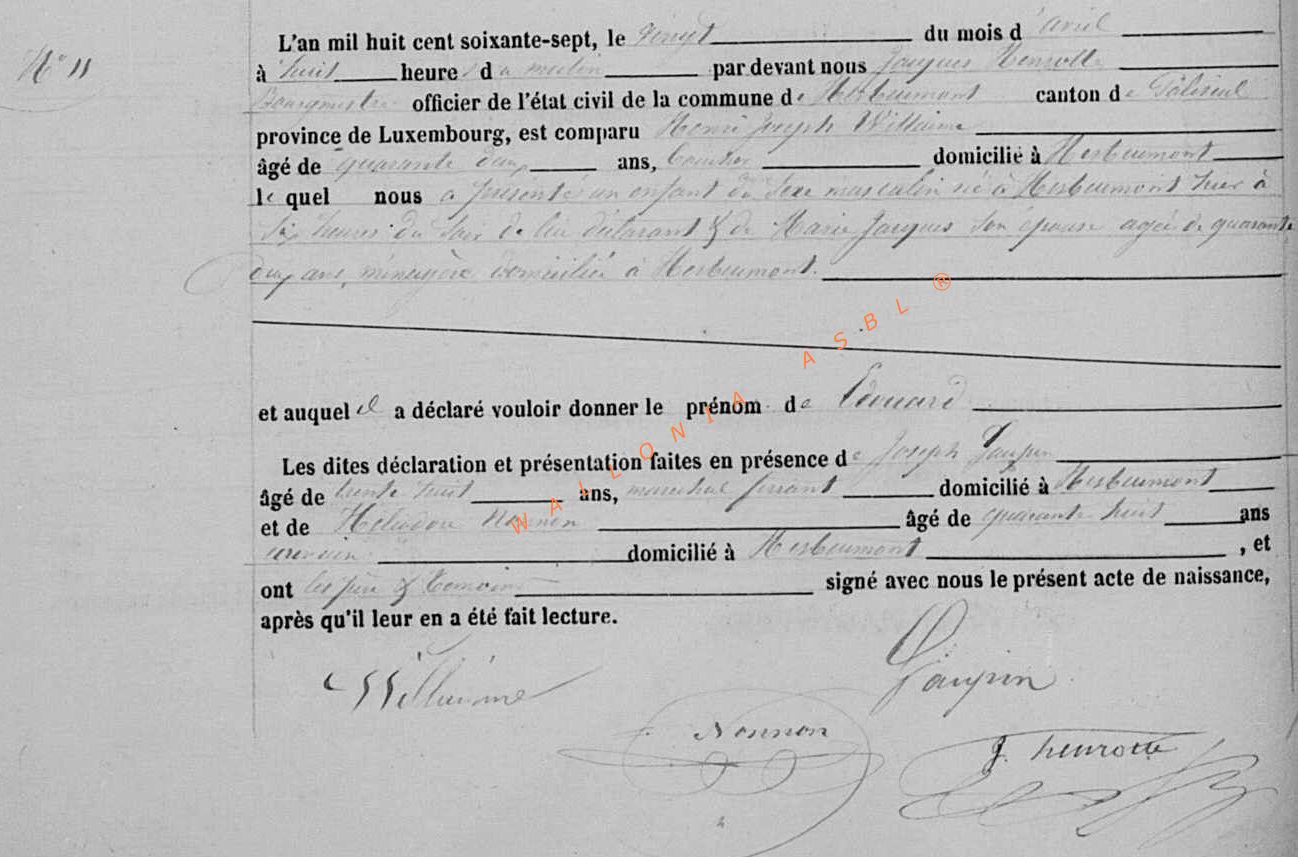 N° 11
L'an mil huit cent soixante-sept, le vingt du mois d'avril
à huit heures du matin par devant nous Jacques Henrotte
Bourgmestre officier de l'état civil de la commune de Herbeumont canton de Paliseul
province de Luxembourg, est comparu Henri Joseph Willaime
âgé de quarante deux ans, domicilié à Herbeumont
lequel nous a présenté un enfant du sexe masculin né à Herbeumont hier à
six heures du soir de lui déclarant & de Marie Jacques son épouse agée de quarante
deux ans, ménagère domiciliée à Herbeumont.
et auquel il a déclaré vouloir donner le prénom de Edouard
Les dites déclaration et présentation faites en présence de Joseph Jaupin
âgé de trente huit ans, maréchal ferrant domicilié à Herbeumont
et de Héliodore Nonnon âgé de quarante huit ans
domicilié à Herbeumont, et
ont les père & témoins signé avec nous le présent acte de naissance,
après qu'il leur en a été fait lecture.
Willaime
Jaupin
Nonnon
J. henrotte
WALLONIA ASBL ®